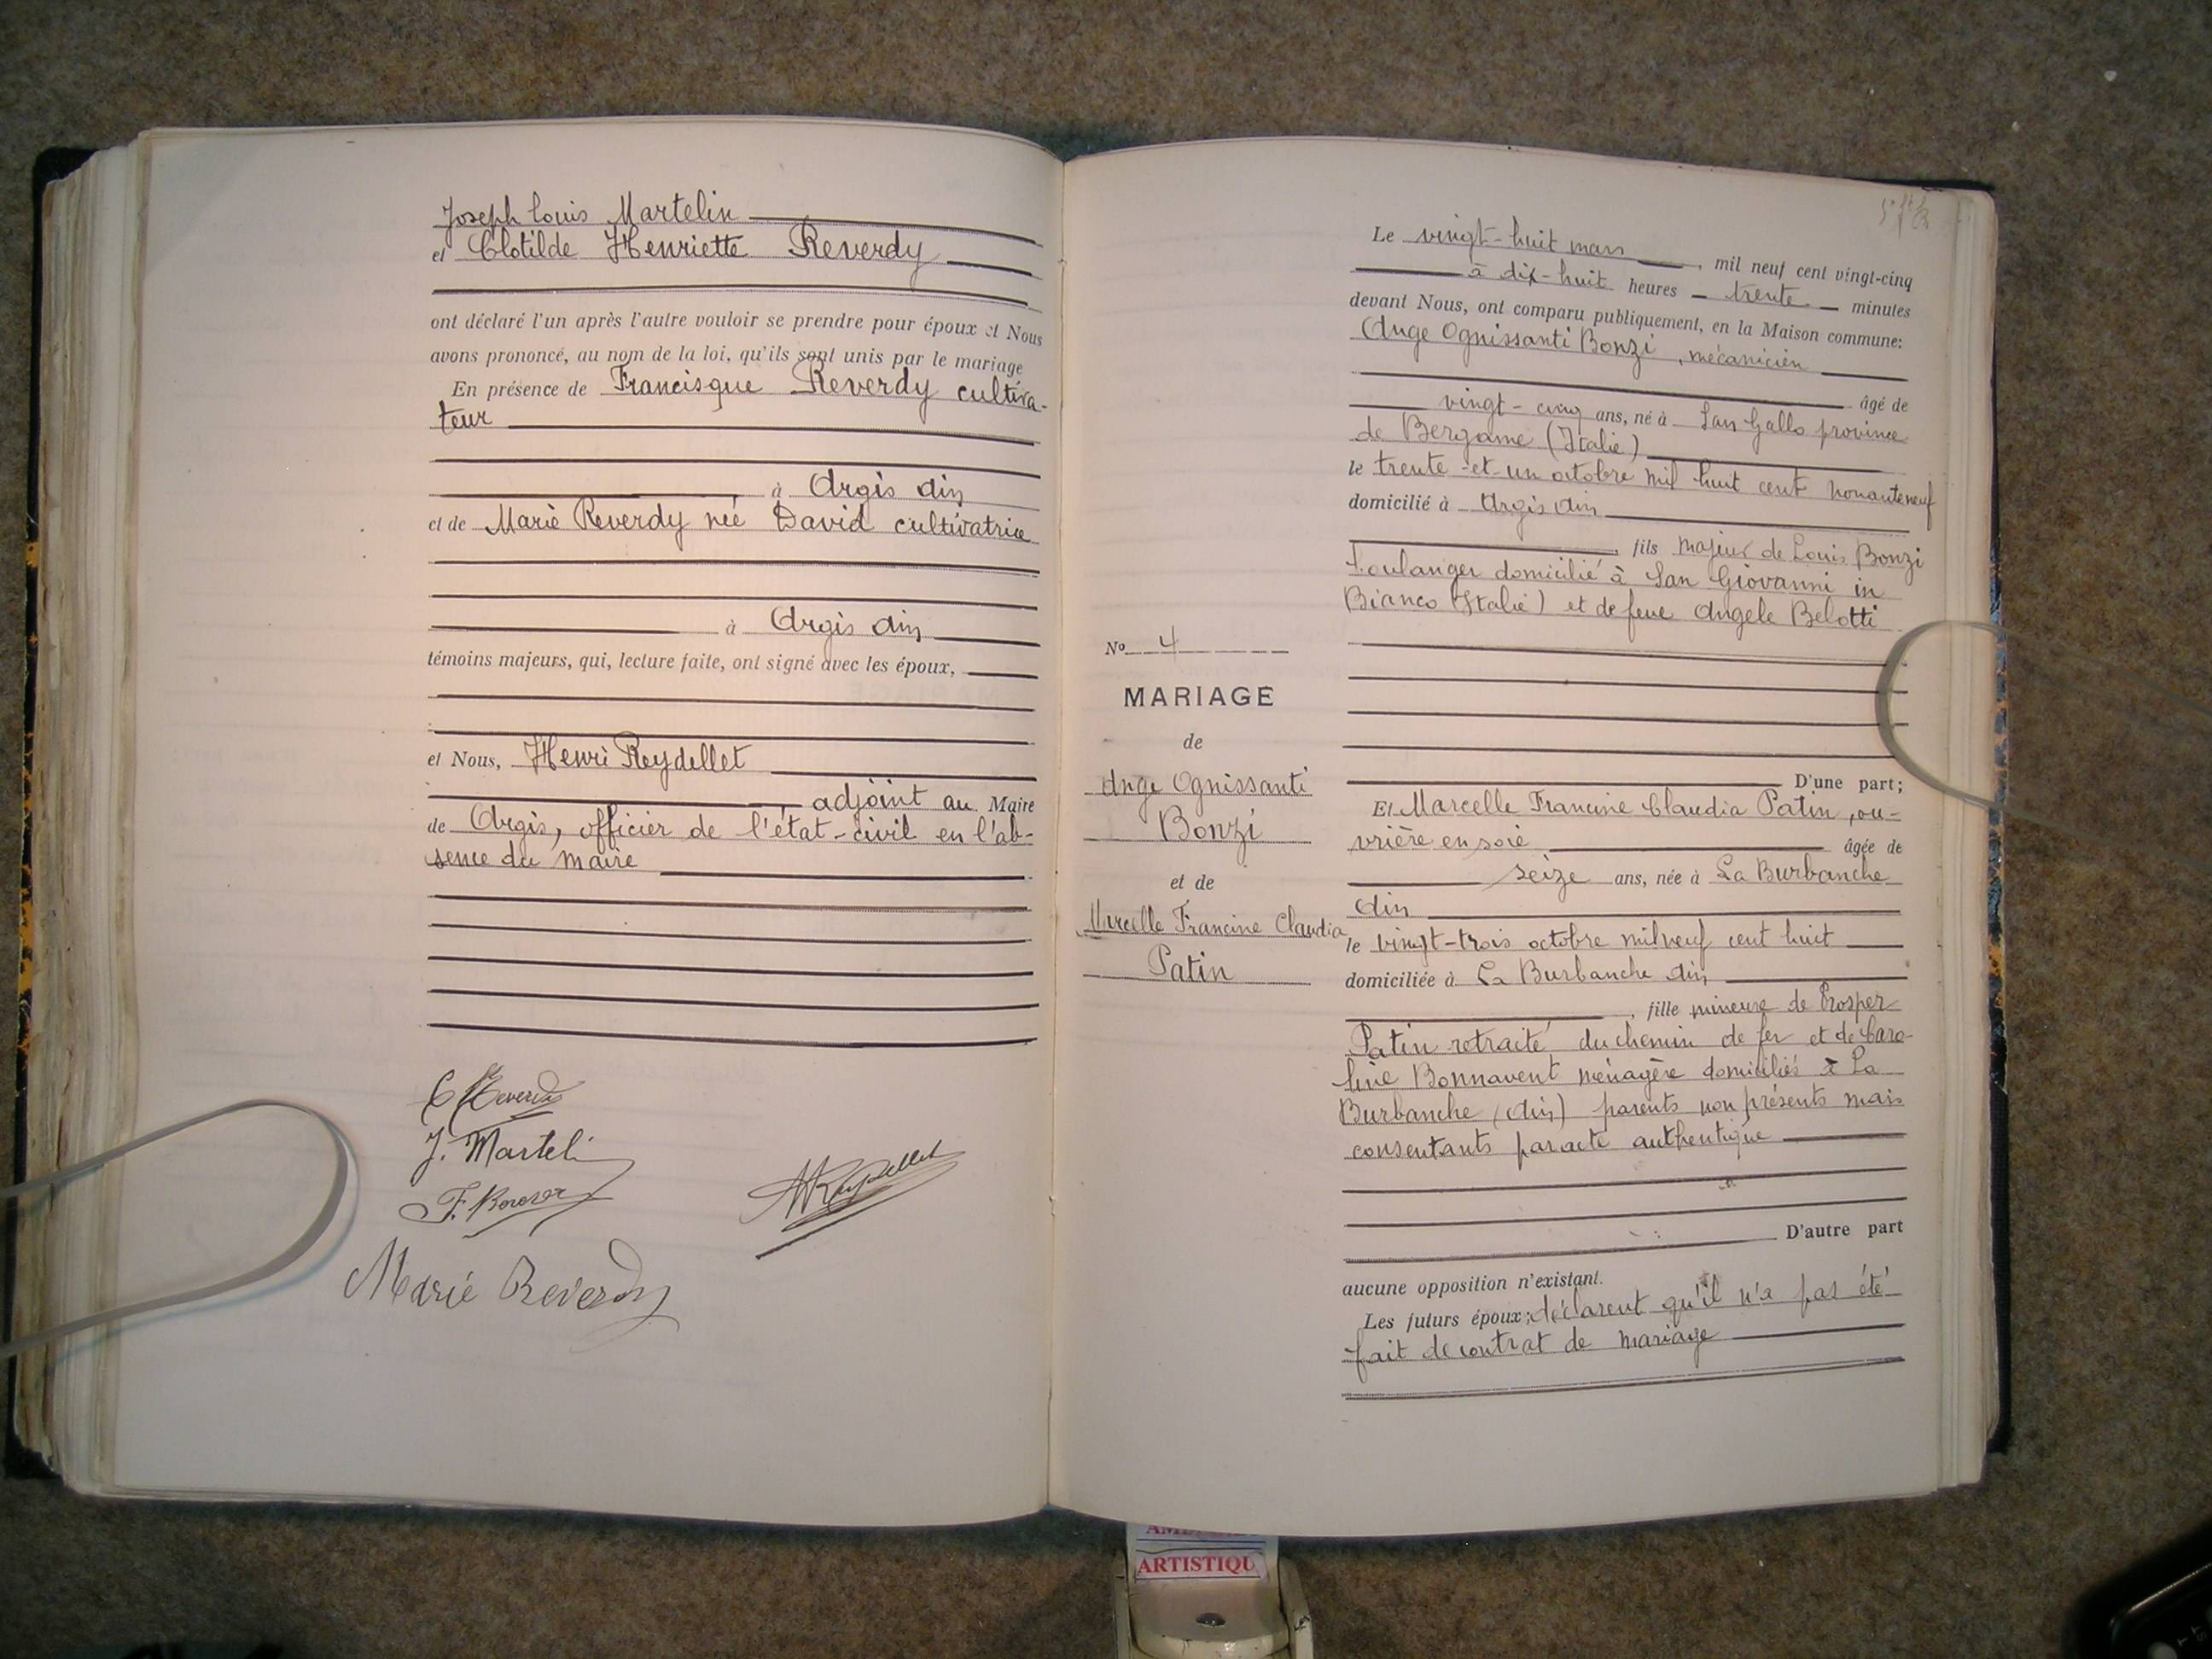 Joseph Louis Martelin
et Clotilde Henriette Reverdy
ont déclaré l'un après l'autre vouloir se prendre pour époux et Nous
avons prononcé, au nom de la loi, qu'ils sont unis par le mariage
En présence de Francisque Reverdy cultiva-
teur
à Argis Ain
et de Marie Reverdy née David cultivatrice
à Argis Ain
témoins majeurs, qui, lecture faite, ont signé avec les époux,
et Nous, Henri Reydellet
adjoint au Maire
de Argis, officier de l'état-civil en l'ab-
sence du maire
C Reverdy
J. Martelin
F. Reverdy
HReydellet
Marie Reverdy
No 4
MARIAGE
de
Ange Ognissanti
Bonzi
et de
Marcelle Francine Claudia
Patin
Le vingt-huit mars, mil neuf cent vingt-cinq
à dix-huit heures trente minutes
devant Nous, ont comparu publiquement, en la Maison commune:
Ange Ognissanti Bonzi, mécanicien
âgé de
vingt-cinq ans, né à San Gallo province
de Bergame (Italie)
le trente-et-un octobre mil huit cent nonante neuf
domicilié à Argis Ain
, fils majeur de Louis Bonzi
boulanger domicilié à San Giovanni in
Bianco (Italie) et de feue Angele Belotti
D'une part;
Et Marcelle Francine Claudia Patin, ou-
vrière en soie âgée de
seize ans, née à La Burbanche
Ain
le vingt-trois octobre mil neuf cent huit
domiciliée à La Burbanche Ain
, fille mineure de Prosper
Patin retraité du chemin de fer et de Caro-
line Bonnavent ménagère domiciliés à La
Burbanche (Ain) parents non présents mais
consentants par acte authentique
D'autre part
aucune opposition n'existant.
Les futurs époux; déclarent qu'il n'a pas été
fait de contrat de mariage
ARTISTIQU